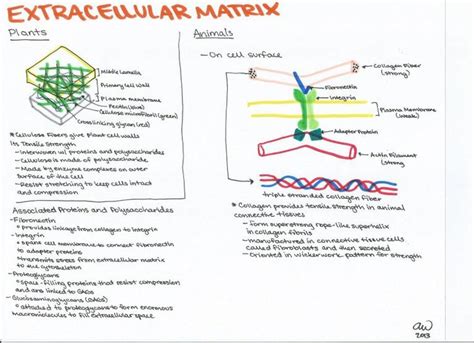 EXTRACELLULAR MATRIX
Plants
Middle Lamella
Primary Cell Wall
Plasma Membrane
Pectin (blue)
Cellulose microfibril (green)
Crosslinking glycan (red)
* Cellulose Fibers give plant cell walls
its Tensile Strength
- Interwoven w/ proteins and polysaccharides
- Cellulose is made of polysaccharide
- Made by enzyme complexes on outer
surface of the cell
- Resist stretching to keep cells intact
and compression
Animals
- On cell surface
Collagen Fiber
(strong)
Fibronectin
Integrin
Plasma Membrane
(weak)
Adapter Protein
Actin Filament
(strong)
triple stranded collagen fiber
* Collagen provides tensile strength in animal
connective tissues
- form superstrong rope-like superhelix
in collagen fibrils
- manufactured in connective tissue cells
called fibroblasts and then secreted
- oriented in wickerwork pattern for strength
Associated Proteins and Polysaccharides
- Fibronectin
* provides linkage from collagen to integrin
- Integrin
* spans cell membrane to connect fibronectin
to adapter proteins
* transmits stress from extracellular matrix
to the cytoskeleton
- Proteoglycans
* space-filling proteins that resist compression
and are linked to GAGs
- Glycosaminoglycans (GAGs)
* attached to proteoglycans to form enormous
macromolecules to fill extracellular space
2013